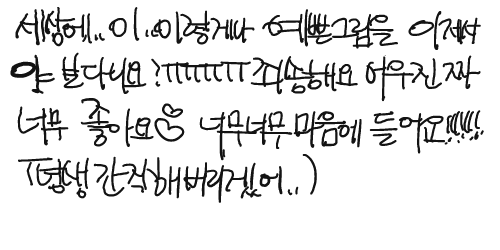 세상에..이..이렇게나 예쁜그림을 이제서
야 보다니요?ㅠㅠㅠㅠㅠㅠ죄송해요 어우진짜
너무 좋아요♡ 너무너무 마음에 들어요!!!!!!
평생 간직해버리겠어..)